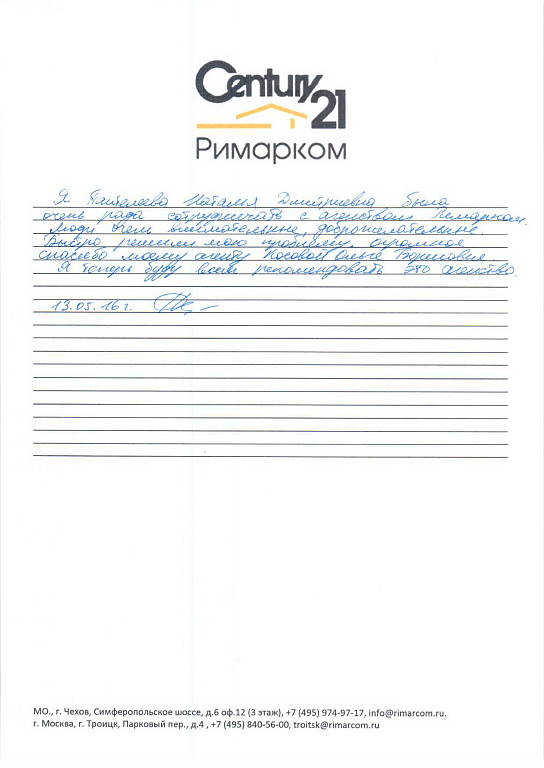 Century 21
Римарком
Я Пантелеева Наталия Дмитриевна была
очень рада сотрудничать с агенством Римарком.
Люди очень внимательные, доброжелательные.
Быстро решили мою проблему. огромное
спасебо моему агенту Носовой Ольге Борисовне
Я теперь буду всем рекомендовать это агенство.
13.05.16 г.
МО., г. Чехов, Симферопольское шоссе, д.6 оф.12 (3 этаж), +7 (495) 974-97-17, info@rimarcom.ru.
г. Москва, г. Троицк, Парковый пер., д.4 , +7 (495) 840-56-00, troitsk@rimarcom.ru